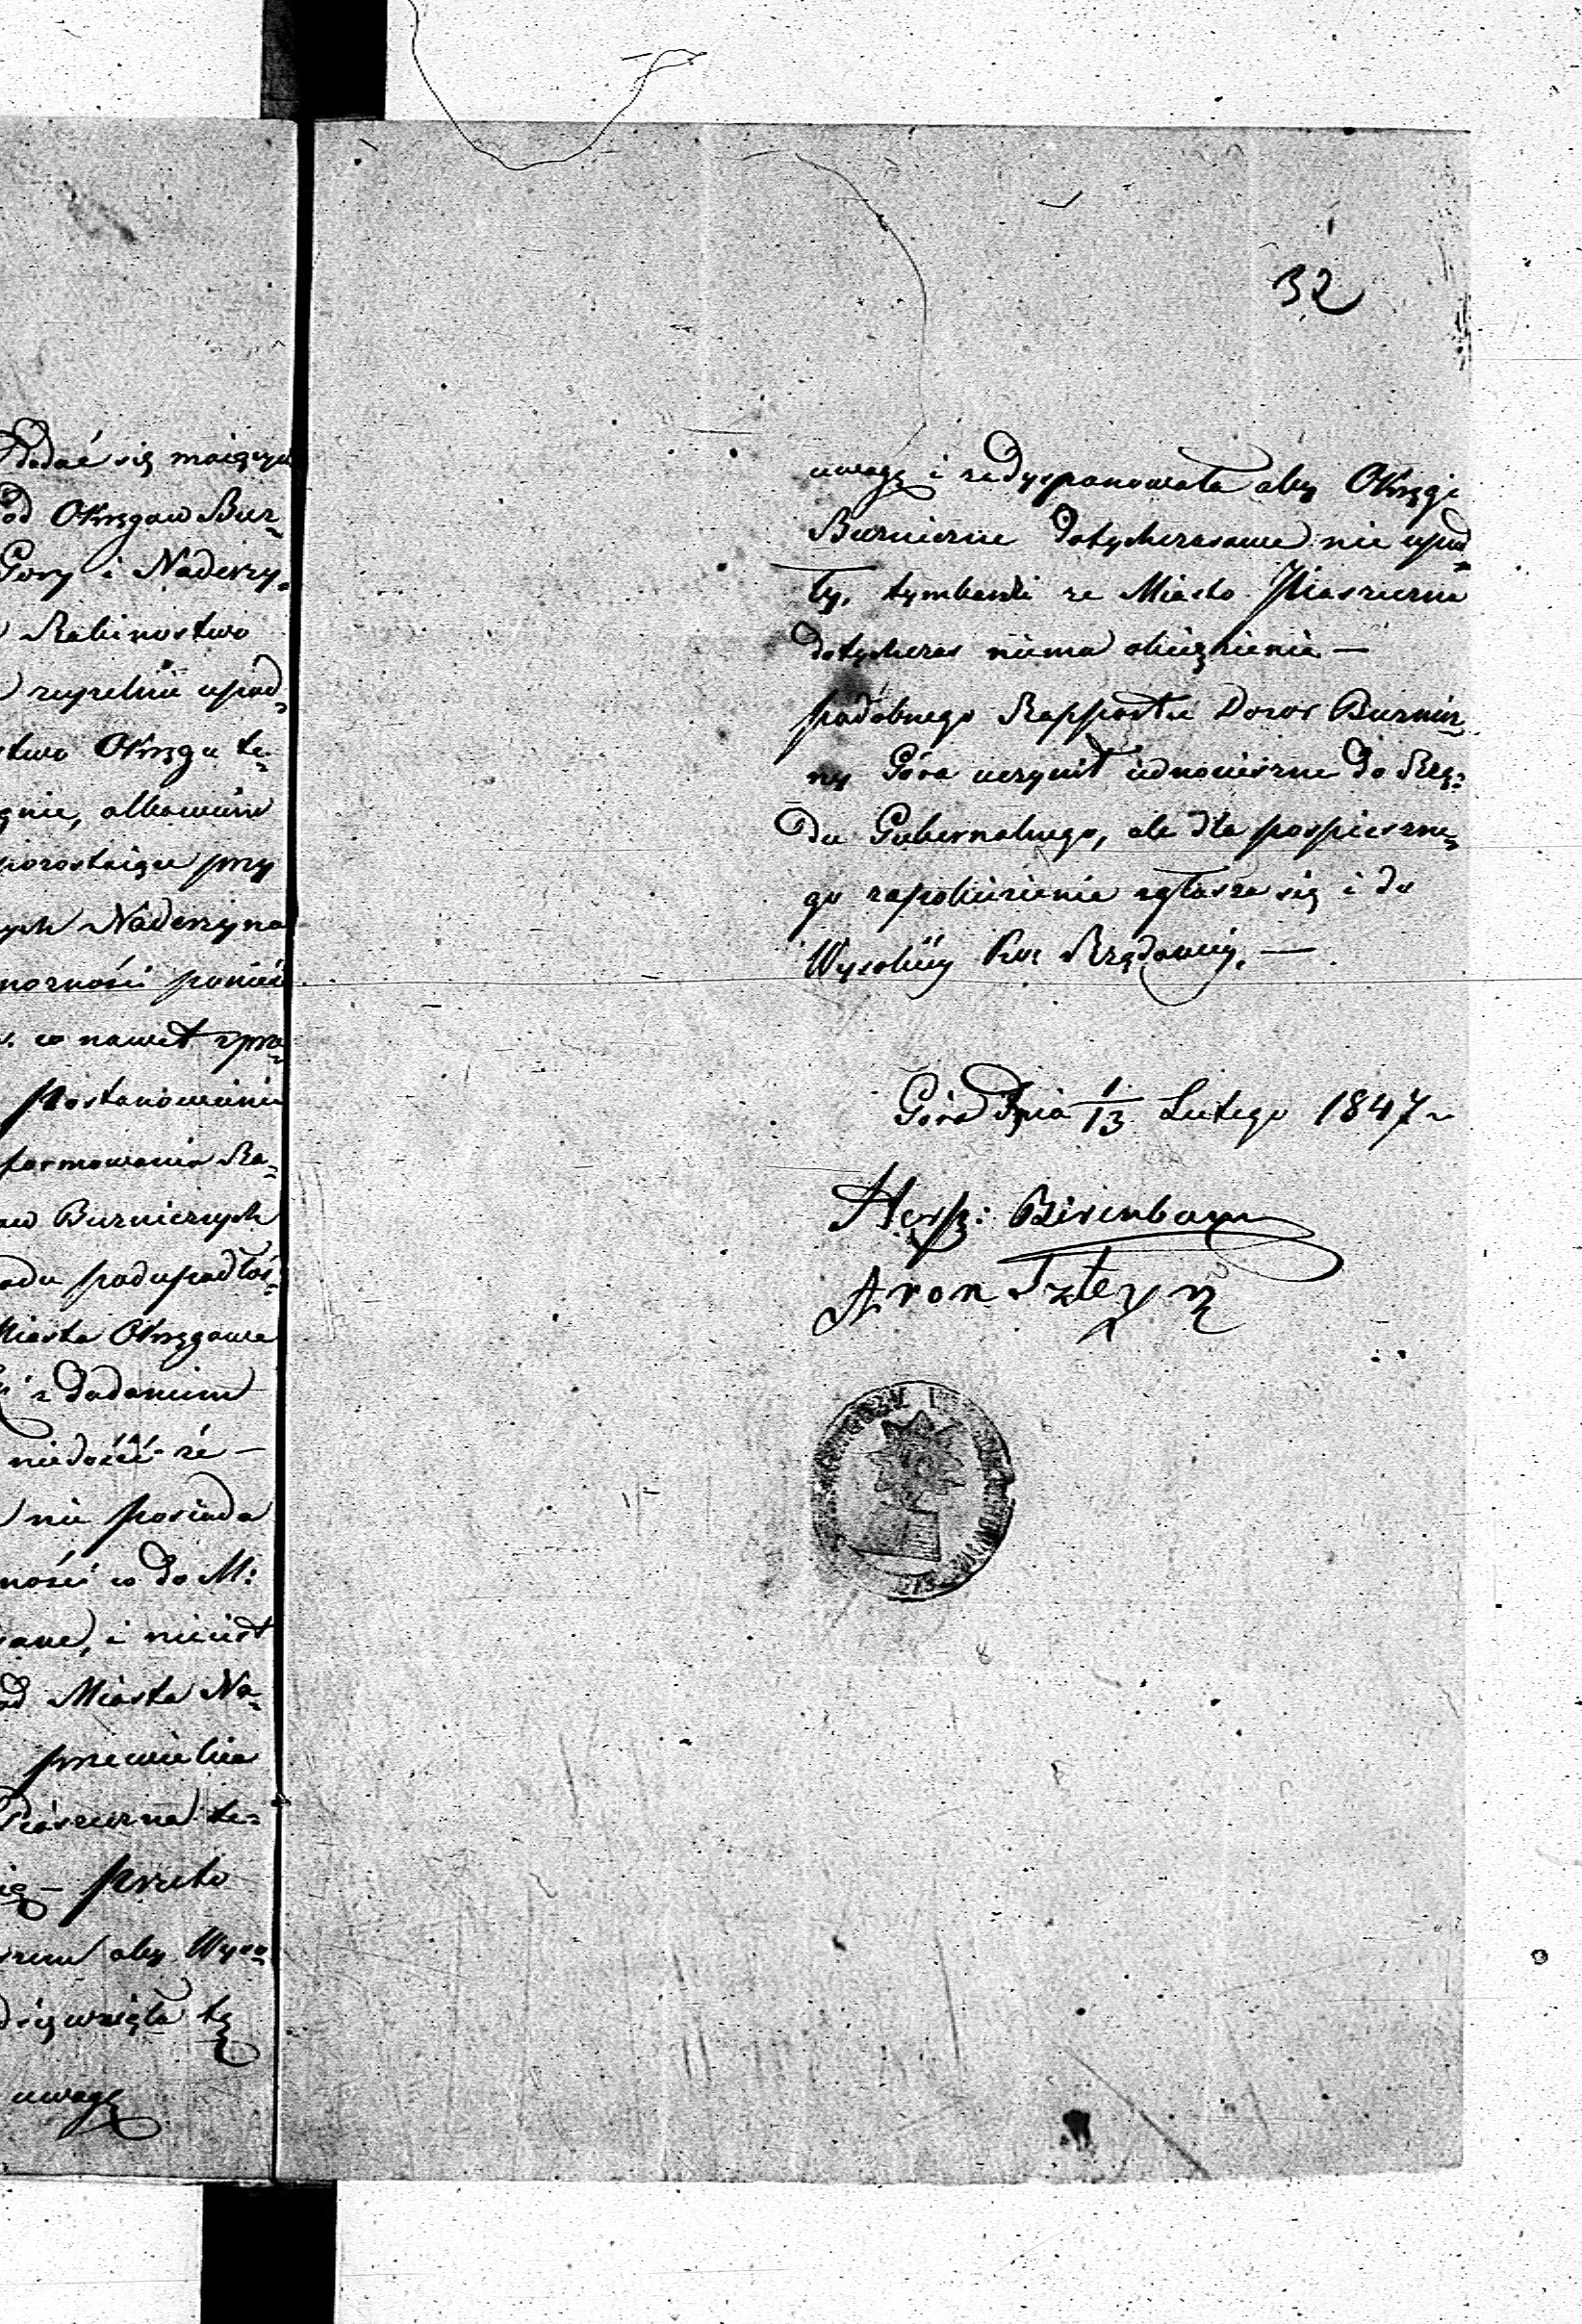 dodać się maiącym
od Okręgow Buz=
Gory i Nadarzy=
Rabinostwo
zupełnie upad=
stwo Okręgu te=
gnie, albowiem
pozostaiące przy
ych Nadarzyna
możności ponieś
co nawet z pra=
Postanowienia
formowania Ra=
Bużniczych
podupadłoś=
Miasta Okręgowe
z dodaniem
niedość że —
nie posiada
ności co do M:
i nieiest
od Miasta Na=
przewielca
Piaseczna te=
— przeto
aby Wyso=
wzięła tę
uwagę
32
uwagę i zadysponowała aby Okręgi
Bużnicze dotychczasowe nie upad=
ły, tymbardzi ze Miasto Piaseczna
dotychczas niema obciążenia —
podobnego Rapportu Dozor Bużnicz=
ny Góra uczynił iednocześnie do Rzą=
du Gubernalnego, ale dla pospieszne=
go zapobieżenia zgłasza się i do
Wysokiey Kom Rządowey. —
Góra dnia 1/13 Lutego 1847 r
Hersz: Birenbaum
Aron Szteyn